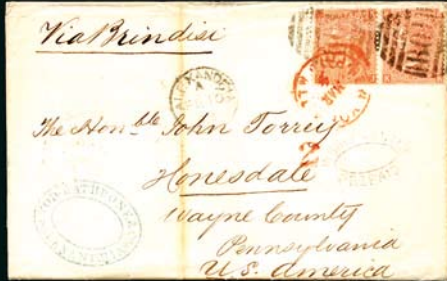 Via Brindisi
ALEXANDRIA
A
The Hon^ble John Torrey
Honesdale
Wayne County
Pennsylvania
U.S. America